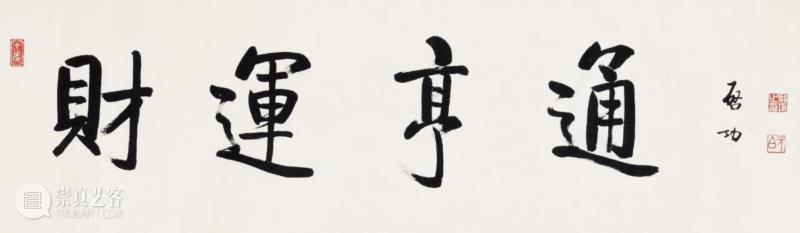 財運亨通
启功
崇真艺客
TRUEART.COM